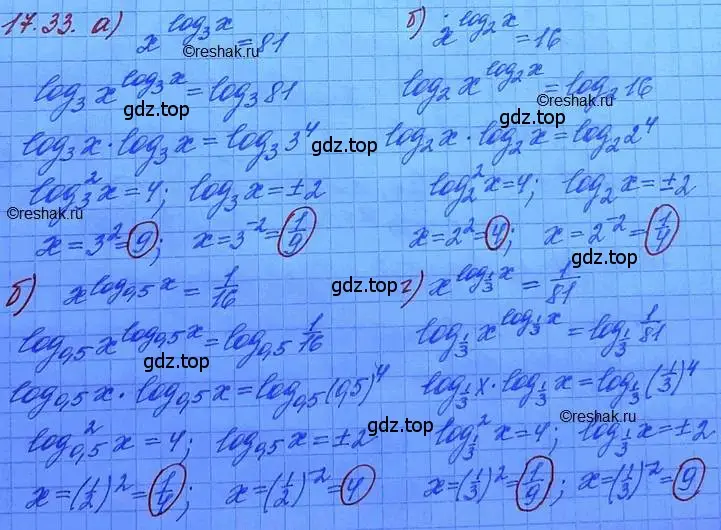 17.33. а) x^{log_3 x} = 81
©reshak.ru
log_3 x^{log_3 x} = log_3 81
gdz.top
log_3 x · log_3 x = log_3 3^4
gdz.top
log_3^2 x = 4; log_3 x = ±2
©reshak.ru
x = 3^2 = 9; x = 3^{-2} = 1/9
gdz.top
б) x^{log_2 x} = 16
log_2 x^{log_2 x} = log_2 16
©reshak.ru
log_2 x · log_2 x = log_2 2^4
log_2^2 x = 4; log_2 x = ±2
gdz.top
x = 2^2 = 4; x = 2^{-2} = 1/4
б) x^{log_{0,5} x} = 1/16
gdz.top
log_{0,5} x^{log_{0,5} x} = log_{0,5} 1/16
gdz.top
log_{0,5} x · log_{0,5} x = log_{0,5} (0,5)^4
log_{0,5}^2 x = 4; log_{0,5} x = ±2
x = (1/2)^2 = 1/4; x = (1/2)^{-2} = 4
gdz.top
г) x^{log_{1/3} x} = 1/81
log_{1/3} x^{log_{1/3} x} = log_{1/3} 1/81
gdz.top
log_{1/3} x · log_{1/3} x = log_{1/3} (1/3)^4
©reshak.ru
log_{1/3}^2 x = 4; log_{1/3} x = ±2
x = (1/3)^2 = 1/9; x = (1/3)^{-2} = 9
gdz.top